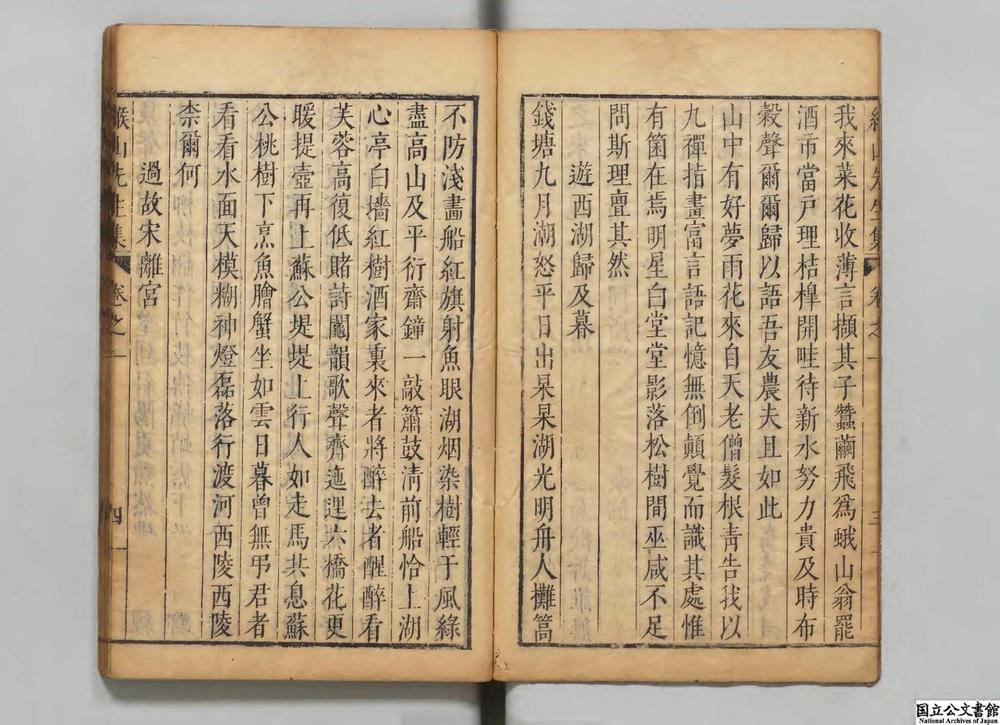 我來菜花收薄言擷其子蠶繭飛爲蛾山翁罷
酒市當戸理桔槹開畦待新水努力貴及時布
穀聲爾爾歸以語吾友農夫且如此
山中有好夢雨花來自天老僧髮根靑告我以
九禪指畫富言語記憶無倒顛覺而識其處惟
有箇在焉明星白堂堂影落松樹間巫咸不足
問斯理亶其然
遊西湖歸及暮
錢塘九月潮怒平日出杲杲湖光明舟人攤篙
不防淺畵船紅旗射魚眼湖烟染樹輕于風綠
盡高山及平衍齋鐘一敲簫鼓淸前船恰上湖
心亭白墻紅樹酒家裏來者將醉去者醒醉看
芙蓉高復低賭詩鬭韻歌聲齊迤逕六橋花更
暖提壺再上蘇公堤堤上行人如走馬共息蘇
公桃樹下烹魚膾蟹坐如雲日暮曾無弔君者
看看水面天模糊神燈磊落行渡河西陵西陵
柰爾何
過故宋離宮
緱山先生集
卷之一
四
国立公文書館
National Archives of Japan